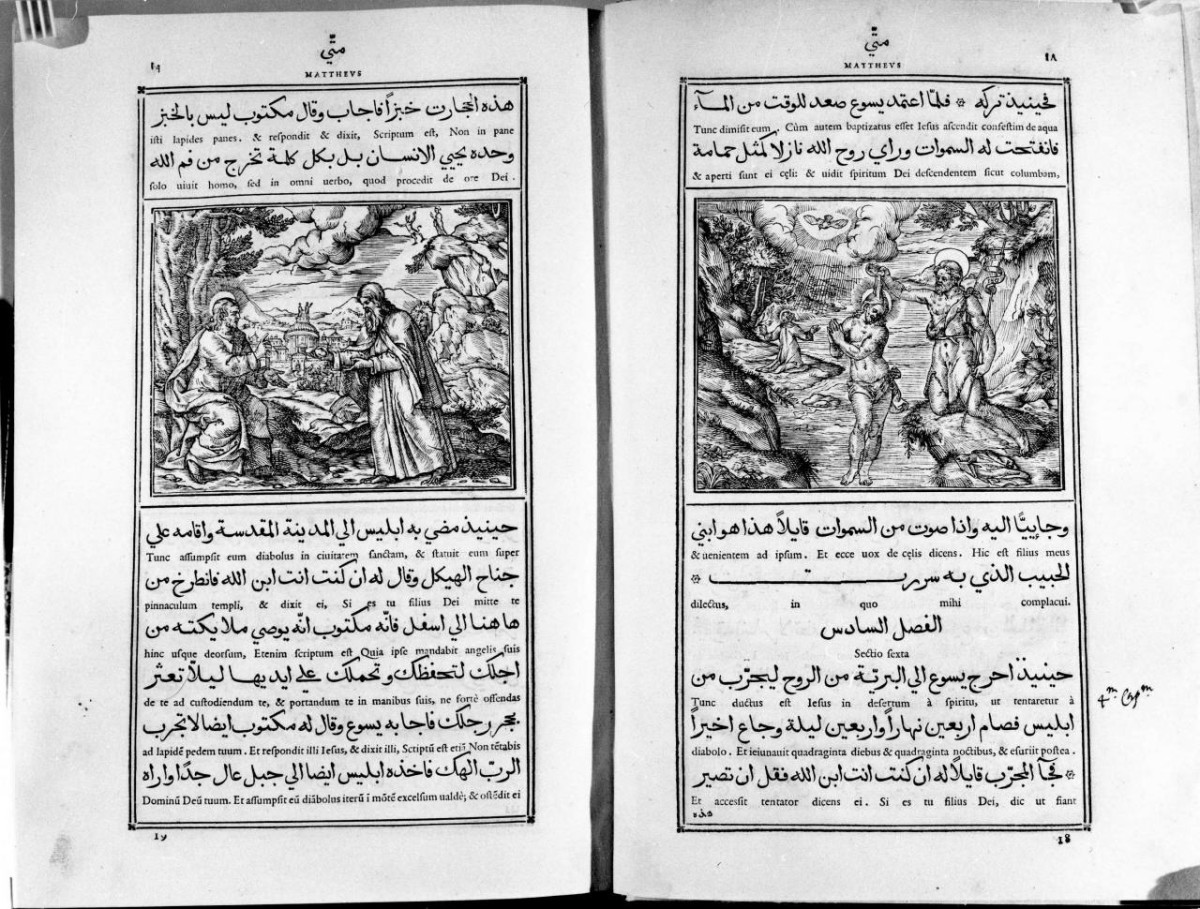 متّي
١٨
MATTHEVS
فحينيذ تركه ※ فلمّا اعتمد يسوع صعد للوقت من المآء
Tunc dimisit eum. Cùm autem baptizatus esset Iesus ascendit confestim de aqua
فانفتحت له السموات وراي روح الله نازلا كمثل حمامة
& aperti sunt ei cęli: & uidit spiritum Dei descendentem sicut columbam,
وجاييًا اليه واذا صوت من السموات قايلاً هذا هو ابني
& uenientem ad ipsum. Et ecce uox de cęlis dicens. Hic est filius meus
الحبيب الذي به سررت ※
dilectus, in quo mihi complacui.
الفصل السادس
Sectio sexta
حينيذ اخرج يسوع الي البريّة من الروح ليجرّب من
Tunc ductus est Iesus in desertum à spiritu, ut tentaretur à
4.m Cap.m
ابليس فصام اربعين نهاراً واربعين ليلة وجاع اخيراً
diabolo. Et ieiunauit quadraginta diebus & quadraginta noctibus, & esuriit postea.
※ فجآ المجرّب قايلاً له ان كنت انت ابن الله فقل ان تصير
Et accessit tentator dicens ei. Si es tu filius Dei, dic ut fiant
هذه
18
متّي
١٩
MATTHEVS
هذه الحجارت خبزاً فاجاب وقال مكتوب ليس بالخبز
isti lapides panes. & respondit & dixit, Scriptum est, Non in pane
وحده يحيي الانسان بل بكل كلمة تخرج من فم الله
solo uiuit homo, sed in omni uerbo, quod procedit de ore Dei.
حينيذ مضي به ابليس الي المدينة المقدسة واقامه علي
Tunc assumpsit eum diabolus in ciuitatem sanctam, & statuit eum super
جناح الهيكل وقال له ان كنت انت ابن الله فانطرح من
pinnaculum templi, & dixit ei, Si es tu filius Dei mitte te
هاهنا الي اسفل فانّه مكتوب انّه يوصي ملايكته من
hinc usque deorsum, Etenim scriptum est Quia ipse mandabit angelis suis
اجلك لتحفظك وتحملك علي ايديها ليلاّ تعثر
de te ad custodiendum te, & portandum te in manibus suis, ne fortè offendas
بحجر رجلك فاجابه يسوع وقال له مكتوب ايضا لا تجرب
ad lapidē pedem tuum. Et respondit illi Iesus, & dixit illi, Scriptū est etiā Non tētabis
الربّ الهك فاخذه ابليس ايضا الي جبل عال جدّا واراه
Dominū Deū tuum. Et assumpsit eū diabolus iterū i mōtē excelsum ualdè; & ostēdit ei
19